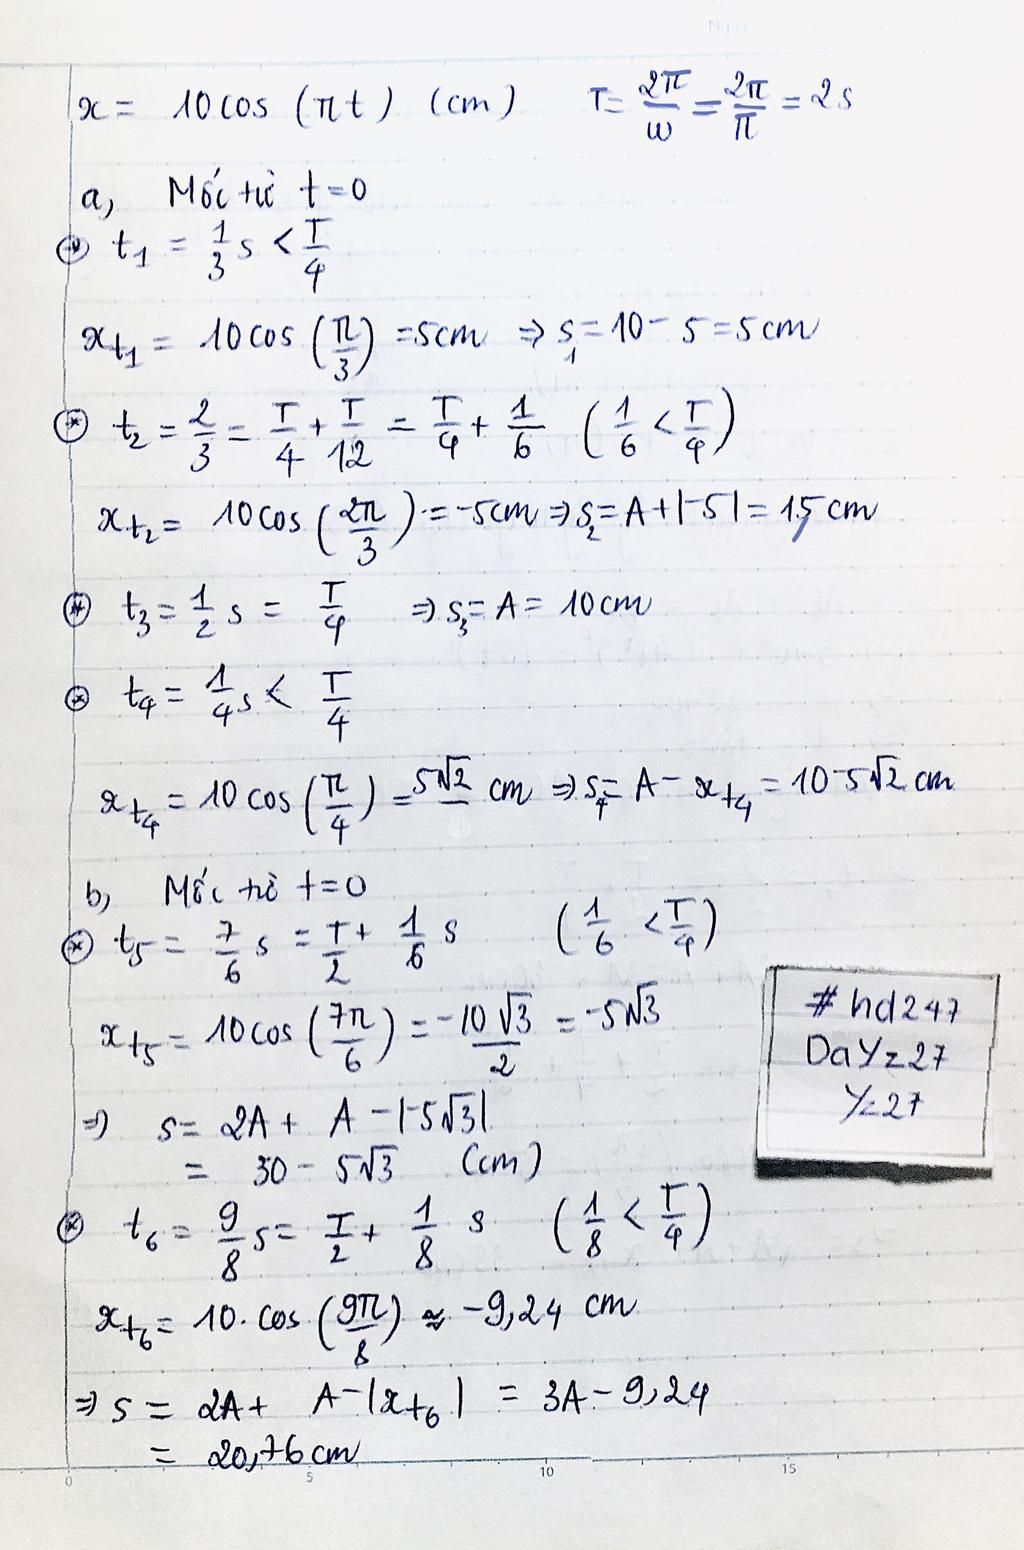 x = 10cos (πt) (cm) T = 2π/ω = 2π/π = 2s
a, Mốc từ t=0
* t1 = 1/3 s < T/4
xt1 = 10cos (π/3) = 5cm ⇒ s1 = 10 - 5 = 5cm
* t2 = 2/3 = T/4 + T/12 = T/4 + 1/6 (1/6 < T/4)
xt2 = 10cos (2π/3) = -5cm ⇒ s2 = A + |-5| = 15 cm
* t3 = 1/2 s = T/4 ⇒ s3 = A = 10cm
* t4 = 1/4 s < T/4
xt4 = 10cos (π/4) = 5√2 cm ⇒ s4 = A - xt4 = 10-5√2 cm
b, Mốc từ t=0
* t5 = 7/6 s = T/2 + 1/6 s (1/6 < T/4)
xt5 = 10cos (7π/6) = -10√3/2 = -5√3
⇒ s = 2A + A - |-5√3|
= 30 - 5√3 (cm)
* t6 = 9/8 s = T/2 + 1/8 s (1/8 < T/4)
xt6 = 10.cos (9π/8) ≈ -9,24 cm
⇒ s = 2A + A - |xt6| = 3A - 9,24
= 20,76cm
#hd247
DaYz27
Yz27
0 5 10 15